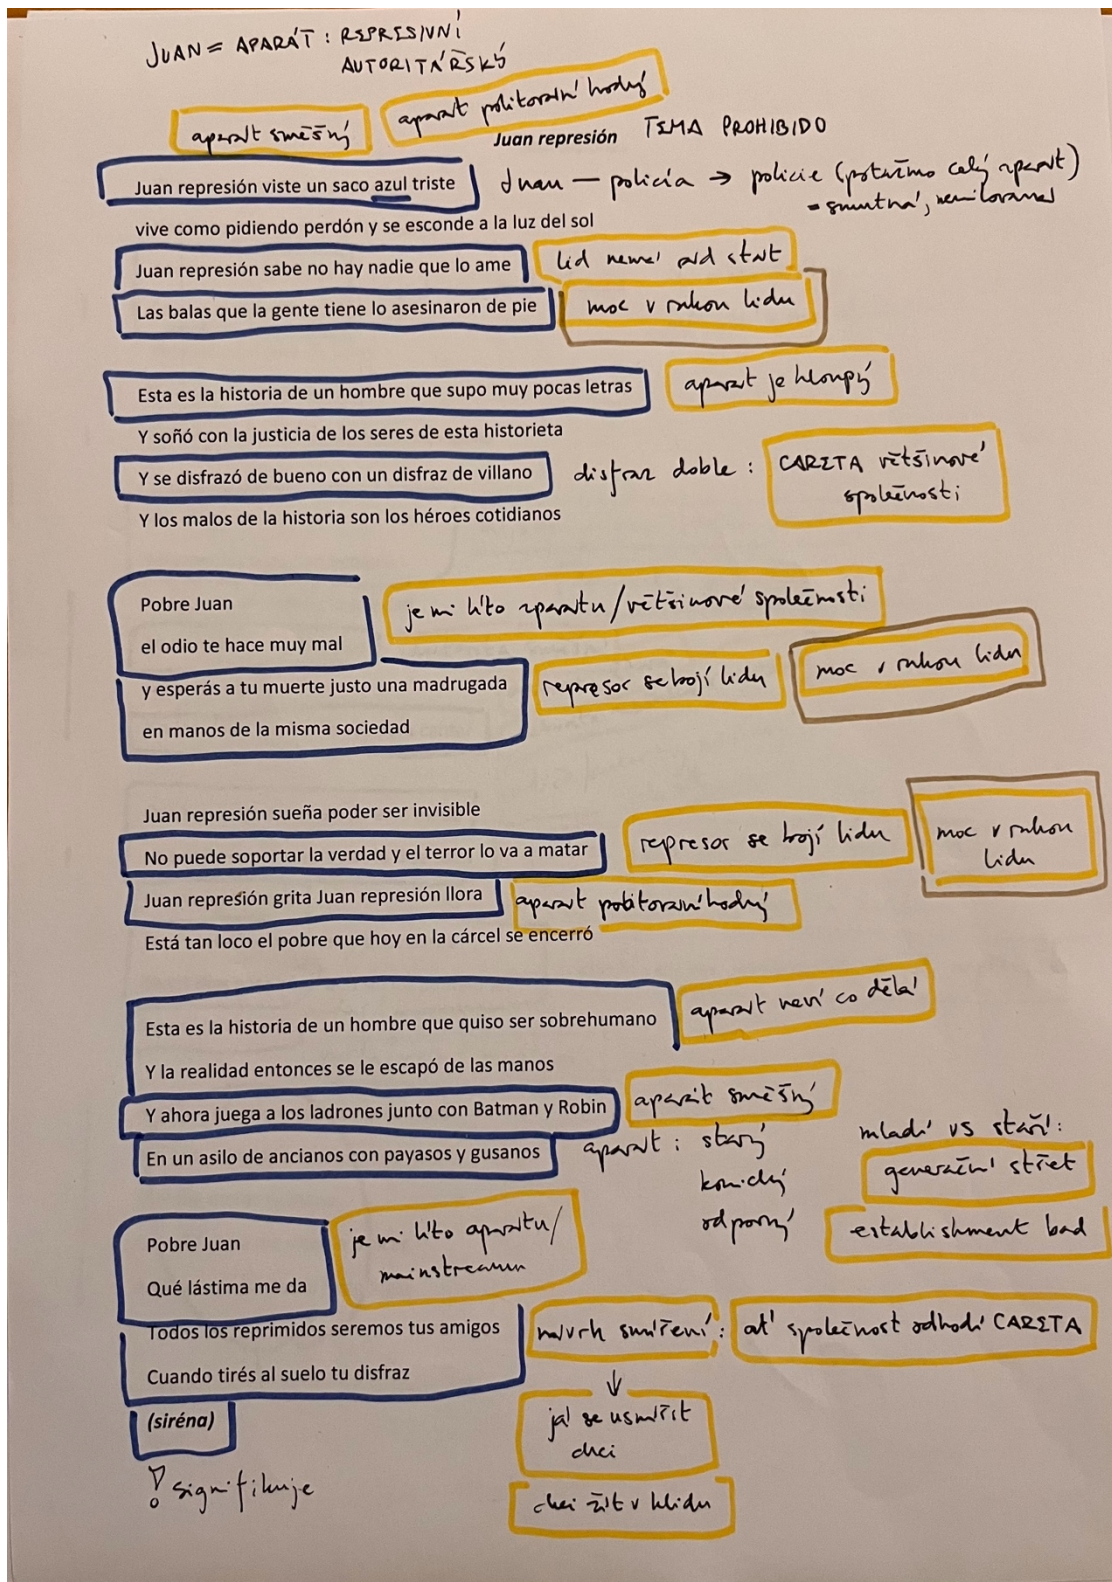 JUAN = APARÁT : REPRESIVNÍ
AUTORITÁŘSKÝ
aparát směšný
aparát politováníhodný
Juan represión TEMA PROHIBIDO
Juan represión viste un saco azul triste
Juan — policía → policie (potažmo celý aparát)
= smutná, nemilovaná
vive como pidiendo perdón y se esconde a la luz del sol
Juan represión sabe no hay nadie que lo ame
lid nemá rád stát
Las balas que la gente tiene lo asesinaron de pie
moc v rukou lidu
Esta es la historia de un hombre que supo muy pocas letras
aparát je hloupý
Y soñó con la justicia de los seres de esta historieta
Y se disfrazó de bueno con un disfraz de villano
disfraz doble : CARETA většinové
společnosti
Y los malos de la historia son los héroes cotidianos
Pobre Juan
je mi líto aparátu/většinové společnosti
el odio te hace muy mal
y esperás a tu muerte justo una madrugada
represor se bojí lidu
moc v rukou lidu
en manos de la misma sociedad
Juan represión sueña poder ser invisible
No puede soportar la verdad y el terror lo va a matar
represor se bojí lidu
moc v rukou
lidu
Juan represión grita Juan represión llora
aparát politováníhodný
Está tan loco el pobre que hoy en la cárcel se encerró
Esta es la historia de un hombre que quiso ser sobrehumano
aparát neví co dělá
Y la realidad entonces se le escapó de las manos
Y ahora juega a los ladrones junto con Batman y Robin
aparát směšný
En un asilo de ancianos con payasos y gusanos
aparát : starý
komický
odporný
mladí vs staří:
generační střet
establishment bad
Pobre Juan
je mi líto aparátu/
mainstreamu
Qué lástima me da
Todos los reprimidos seremos tus amigos
návrh smíření: ať společnost odhodí CARETA
Cuando tirés al suelo tu disfraz
(siréna)
já se usmířit
chci
! signifikuje
chci žít v klidu